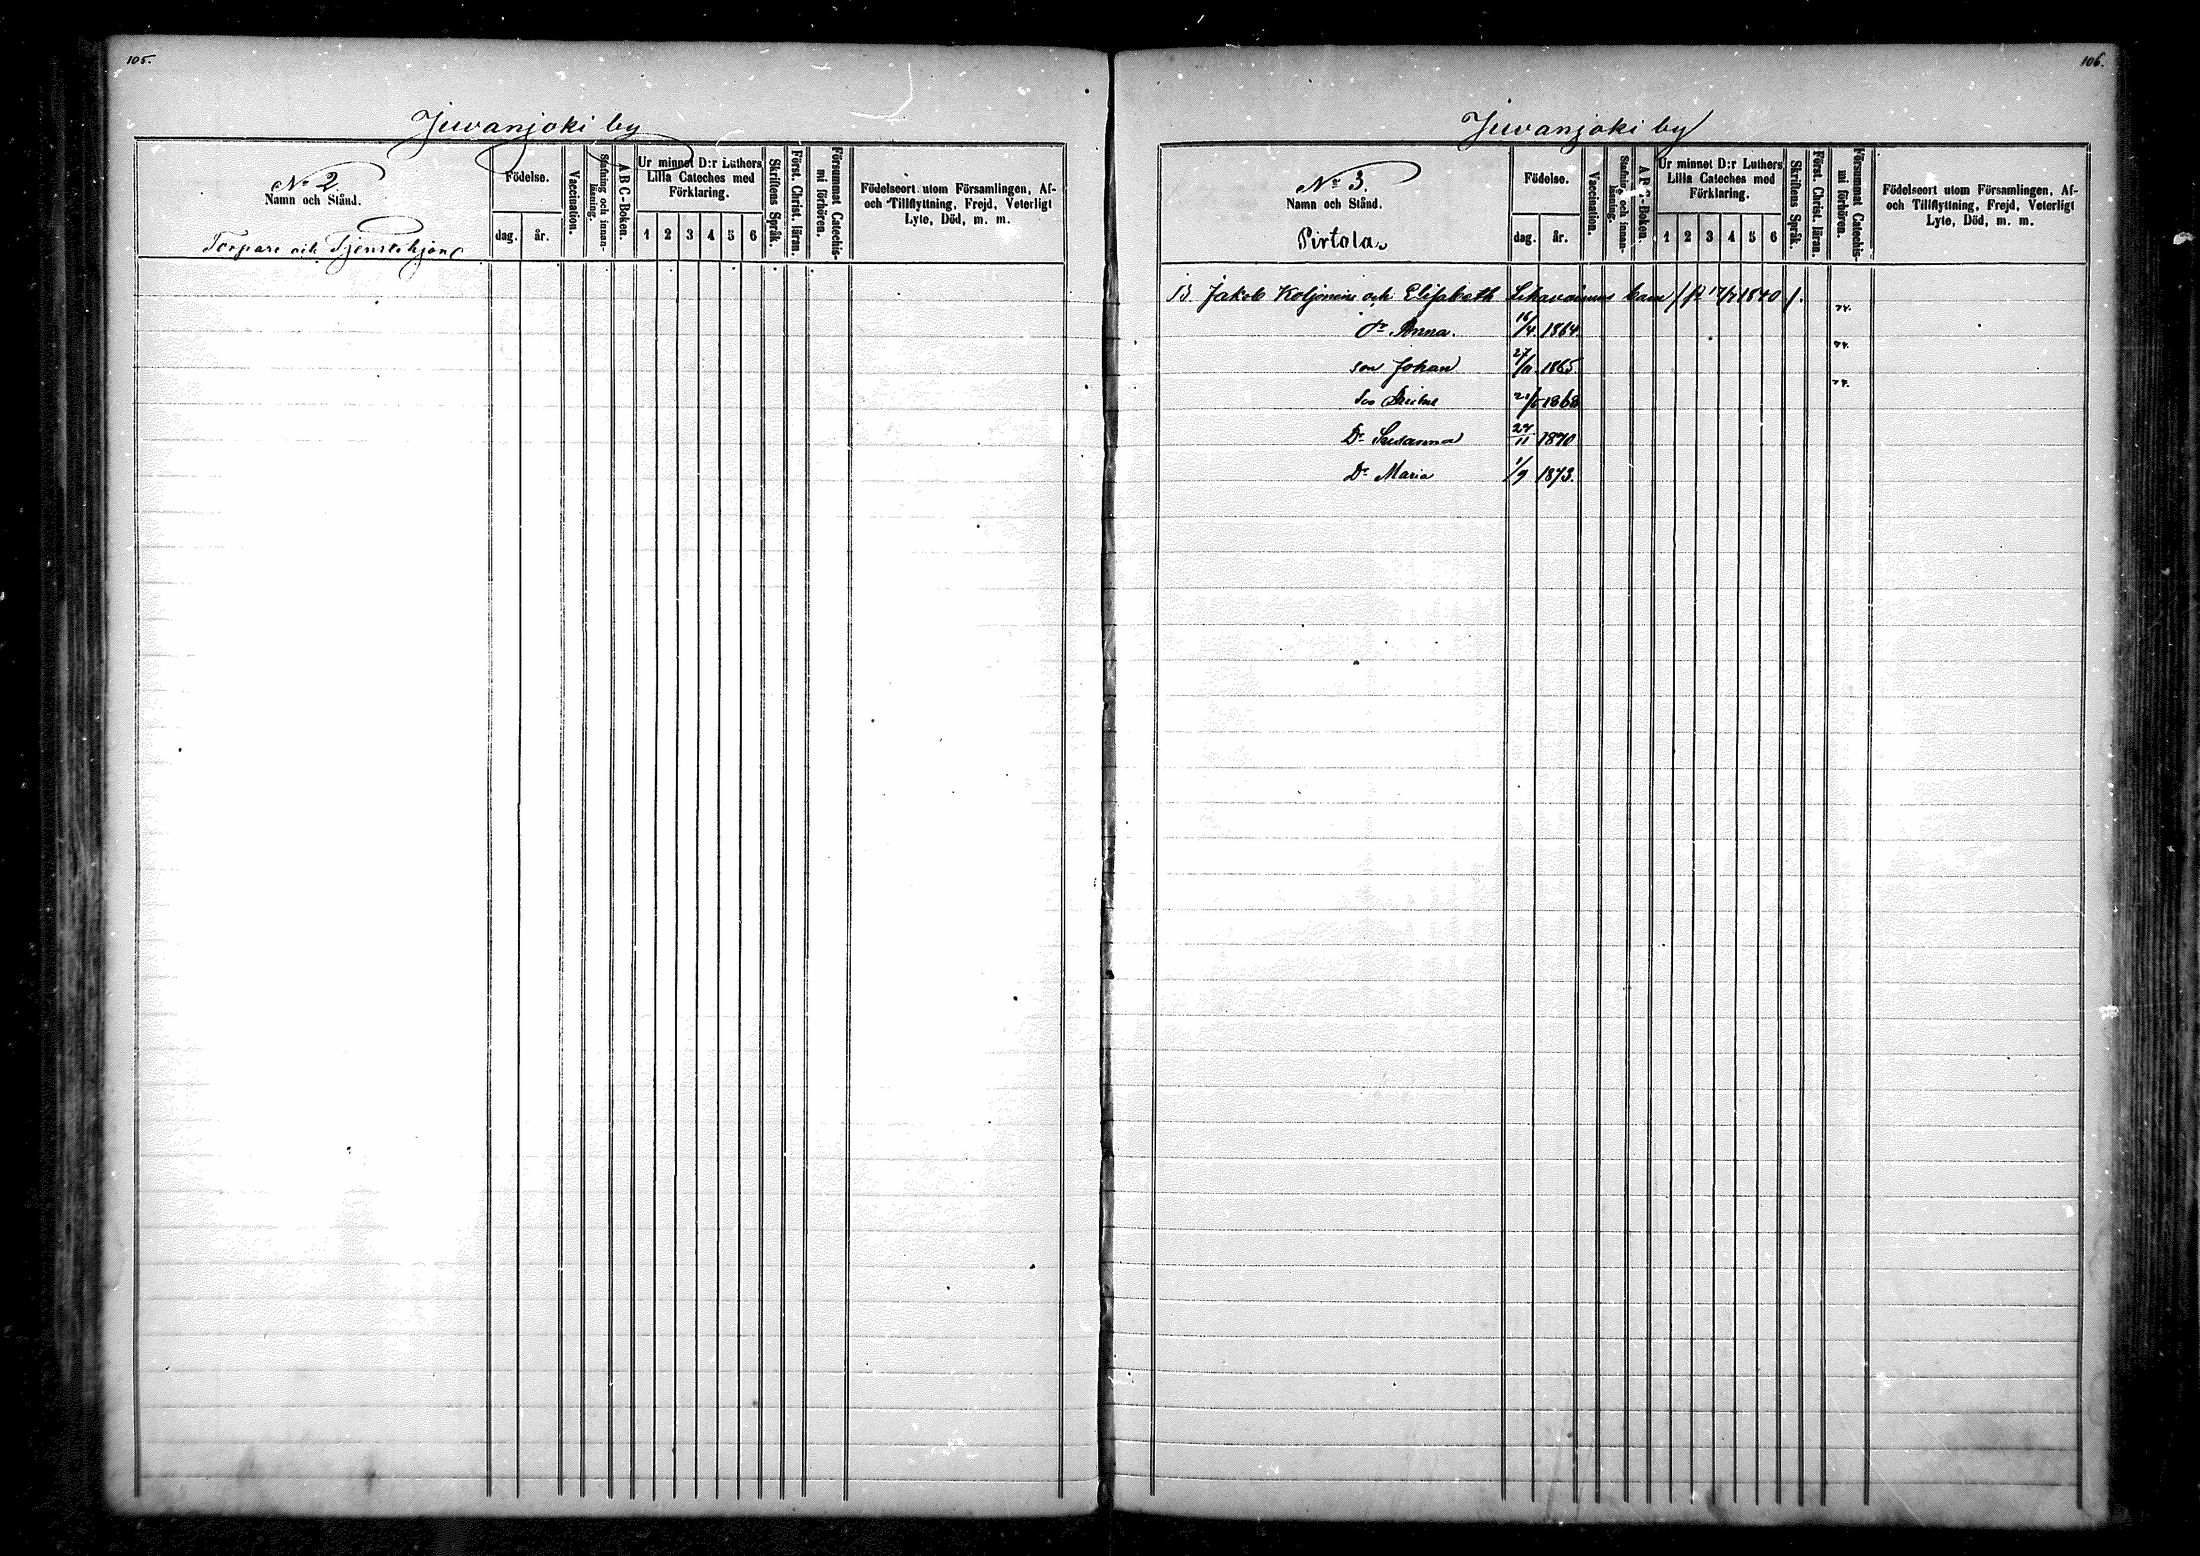 105.
Juvanjoki by
No 2.
Namn och Stånd.
Torpare och Tjenstehjon
Födelse.
dag. år.
Vaccination.
Stafning och innanläsning.
ABC-Boken.
Ur minnet D:r Luthers
Lilla Cateches med
Förklaring.
1 2 3 4 5 6
Skriftens Språk.
Först. Christ. läran.
Försummat Catechismi förhören.
Födelseort utom Församlingen, Af-
och Tillflyttning, Frejd, Veterligt
Lyte, Död, m. m.
106.
Juvanjoki by
No 3.
Namn och Stånd.
Pirtola
Födelse.
dag. år.
Vaccination.
Stafning och innanläsning.
ABC-Boken.
Ur minnet D:r Luthers
Lilla Cateches med
Förklaring.
1 2 3 4 5 6
Skriftens Språk.
Först. Christ. läran.
Försummat Catechismi förhören.
Födelseort utom Församlingen, Af-
och Tillflyttning, Frejd, Veterligt
Lyte, Död, m. m.
B. Jakob Koljonens och Elisabeth barn 1840
Dr Anna. 16/4 1864
son Johan 27/11 1865
son 21/5 1868
Dr Susanna 24/11 1870
Dr Maria 1/9 1873.